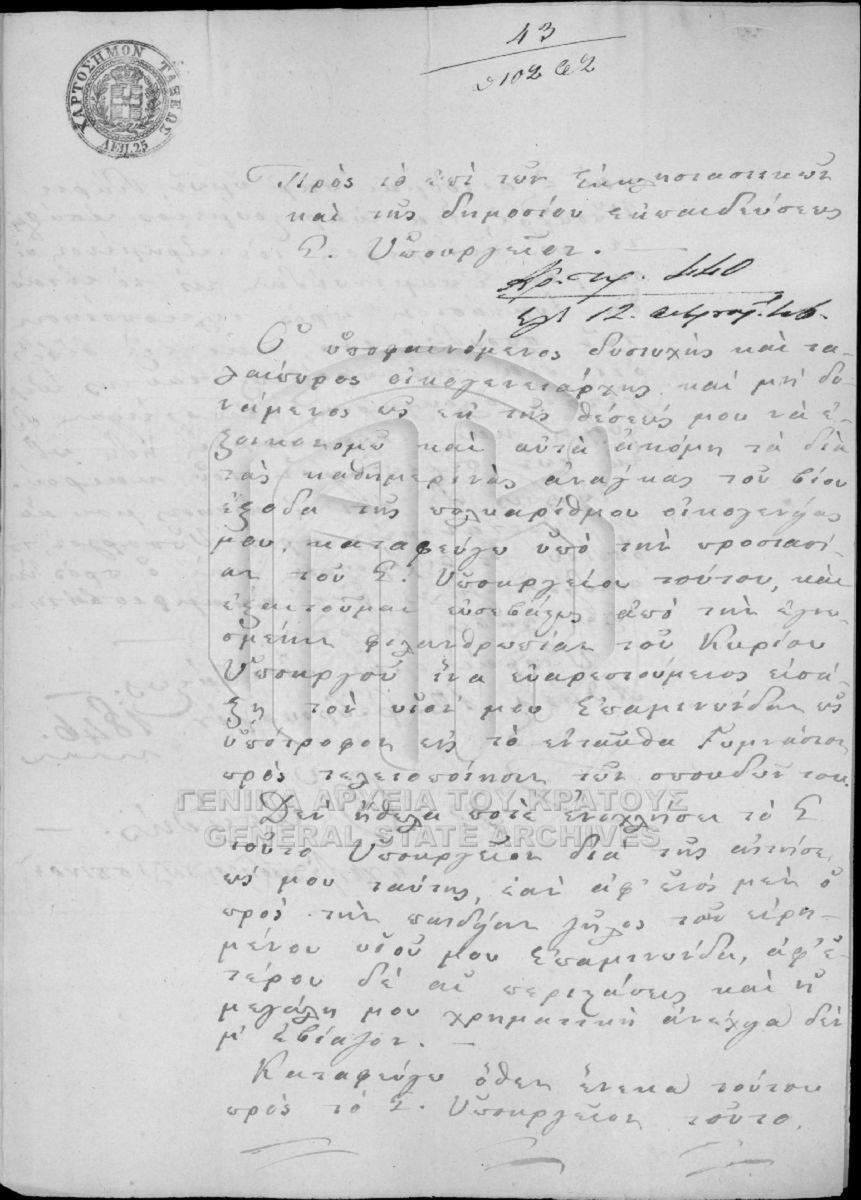 ΧΑΡΤΟΣΗΜΟΝ ΤΑΞΕΩΣ
ΛΕΠ. 25
43
Πρὸς τὸ ἐπὶ τῶν Ἐκκλησιαστικῶν
καὶ τῆς δημοσίου ἐκπαιδεύσεως
Σ. Ὑπουργεῖον. —
12.
Ὁ ὑποφαινόμενος δυστυχὴς καὶ τα-
λαίπωρος οἰκογενειάρχης καὶ μὴ δυ-
νάμενος ὡς ἐκ τῆς θέσεώς μου νὰ ἐ-
ξοικονομῶ καὶ αὐτὰ ἀκόμη τὰ διὰ
τὰς καθημερινὰς ἀνάγκας τοῦ βίου
ἔξοδα τῆς πολυαρίθμου οἰκογενείας
μου, καταφεύγω ὑπὸ τὴν προστασί-
αν τοῦ Σ. Ὑπουργείου τούτου, καὶ
ἐξαιτοῦμαι εὐσεβάστως ἀπὸ τὴν ἐγνω-
σμένην φιλανθρωπίαν τοῦ Κυρίου
Ὑπουργοῦ ἵνα εὐαρεστούμενος εἰσά-
ξῃ τὸν υἱόν μου Ἐπαμινώνδαν ὡς
ὑπότροφον εἰς τὸ ἐνταῦθα Γυμνάσιον
πρὸς τελειοποίησιν τῶν σπουδῶν του.
ΓΕΝΙΚΑ ΑΡΧΕΙΑ ΤΟΥ ΚΡΑΤΟΥΣ
GENERAL STATE ARCHIVES
Δὲν ἤθελα ποτὲ ἐνοχλήσει τὸ Σ.
τοῦτο Ὑπουργεῖον διὰ τῆς αἰτήσε-
ώς μου ταύτης, ἐὰν ἀφ' ἑνὸς μὲν ὁ
πρὸς τὴν παιδείαν ζῆλος τοῦ εἰρη-
μένου υἱοῦ μου Ἐπαμινώνδα, ἀφ' ἑ-
τέρου δὲ αἱ περιστάσεις καὶ ἡ
μεγάλη μου χρηματικὴ ἀνέχεια δὲν
μ' ἐβίαζον. —
Καταφεύγω ὅθεν ἕνεκα τούτου
πρὸς τὸ Σ. Ὑπουργεῖον τοῦτο,